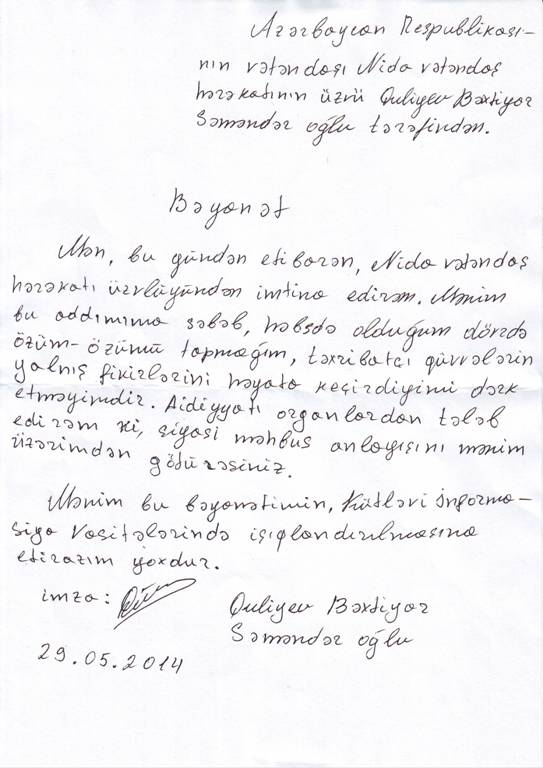 Azərbaycan Respublikası-
nın vətəndaşı Nida vətəndaş
hərəkatının üzvü Quliyev Bəxtiyar
Səməndər oğlu tərəfindən.
Bəyanat
Mən, bu gündən etibarən, Nida vətəndaş
hərəkatı üzvlüyündən imtina edirəm. Mənim
bu addımıma səbəb, həbsdə olduğum dövrdə
özüm-özümü tapmağım, təxribatçı qüvvələrin
yalnış fikirlərini həyata keçirdiyimi dərk
etməyimdir. Aidiyyatı organlardan tələb
edirəm ki, siyasi məhbus anlayışını mənim
üzərimdən götürəsiniz.
Mənim bu bəyanatimin, Kütləvi İnforma-
siya Vasitələrində işıqlandırılmasına
etirazım yoxdur.
imza:
Quliyev Bəxtiyar
Səməndər oğlu
29.05.2014